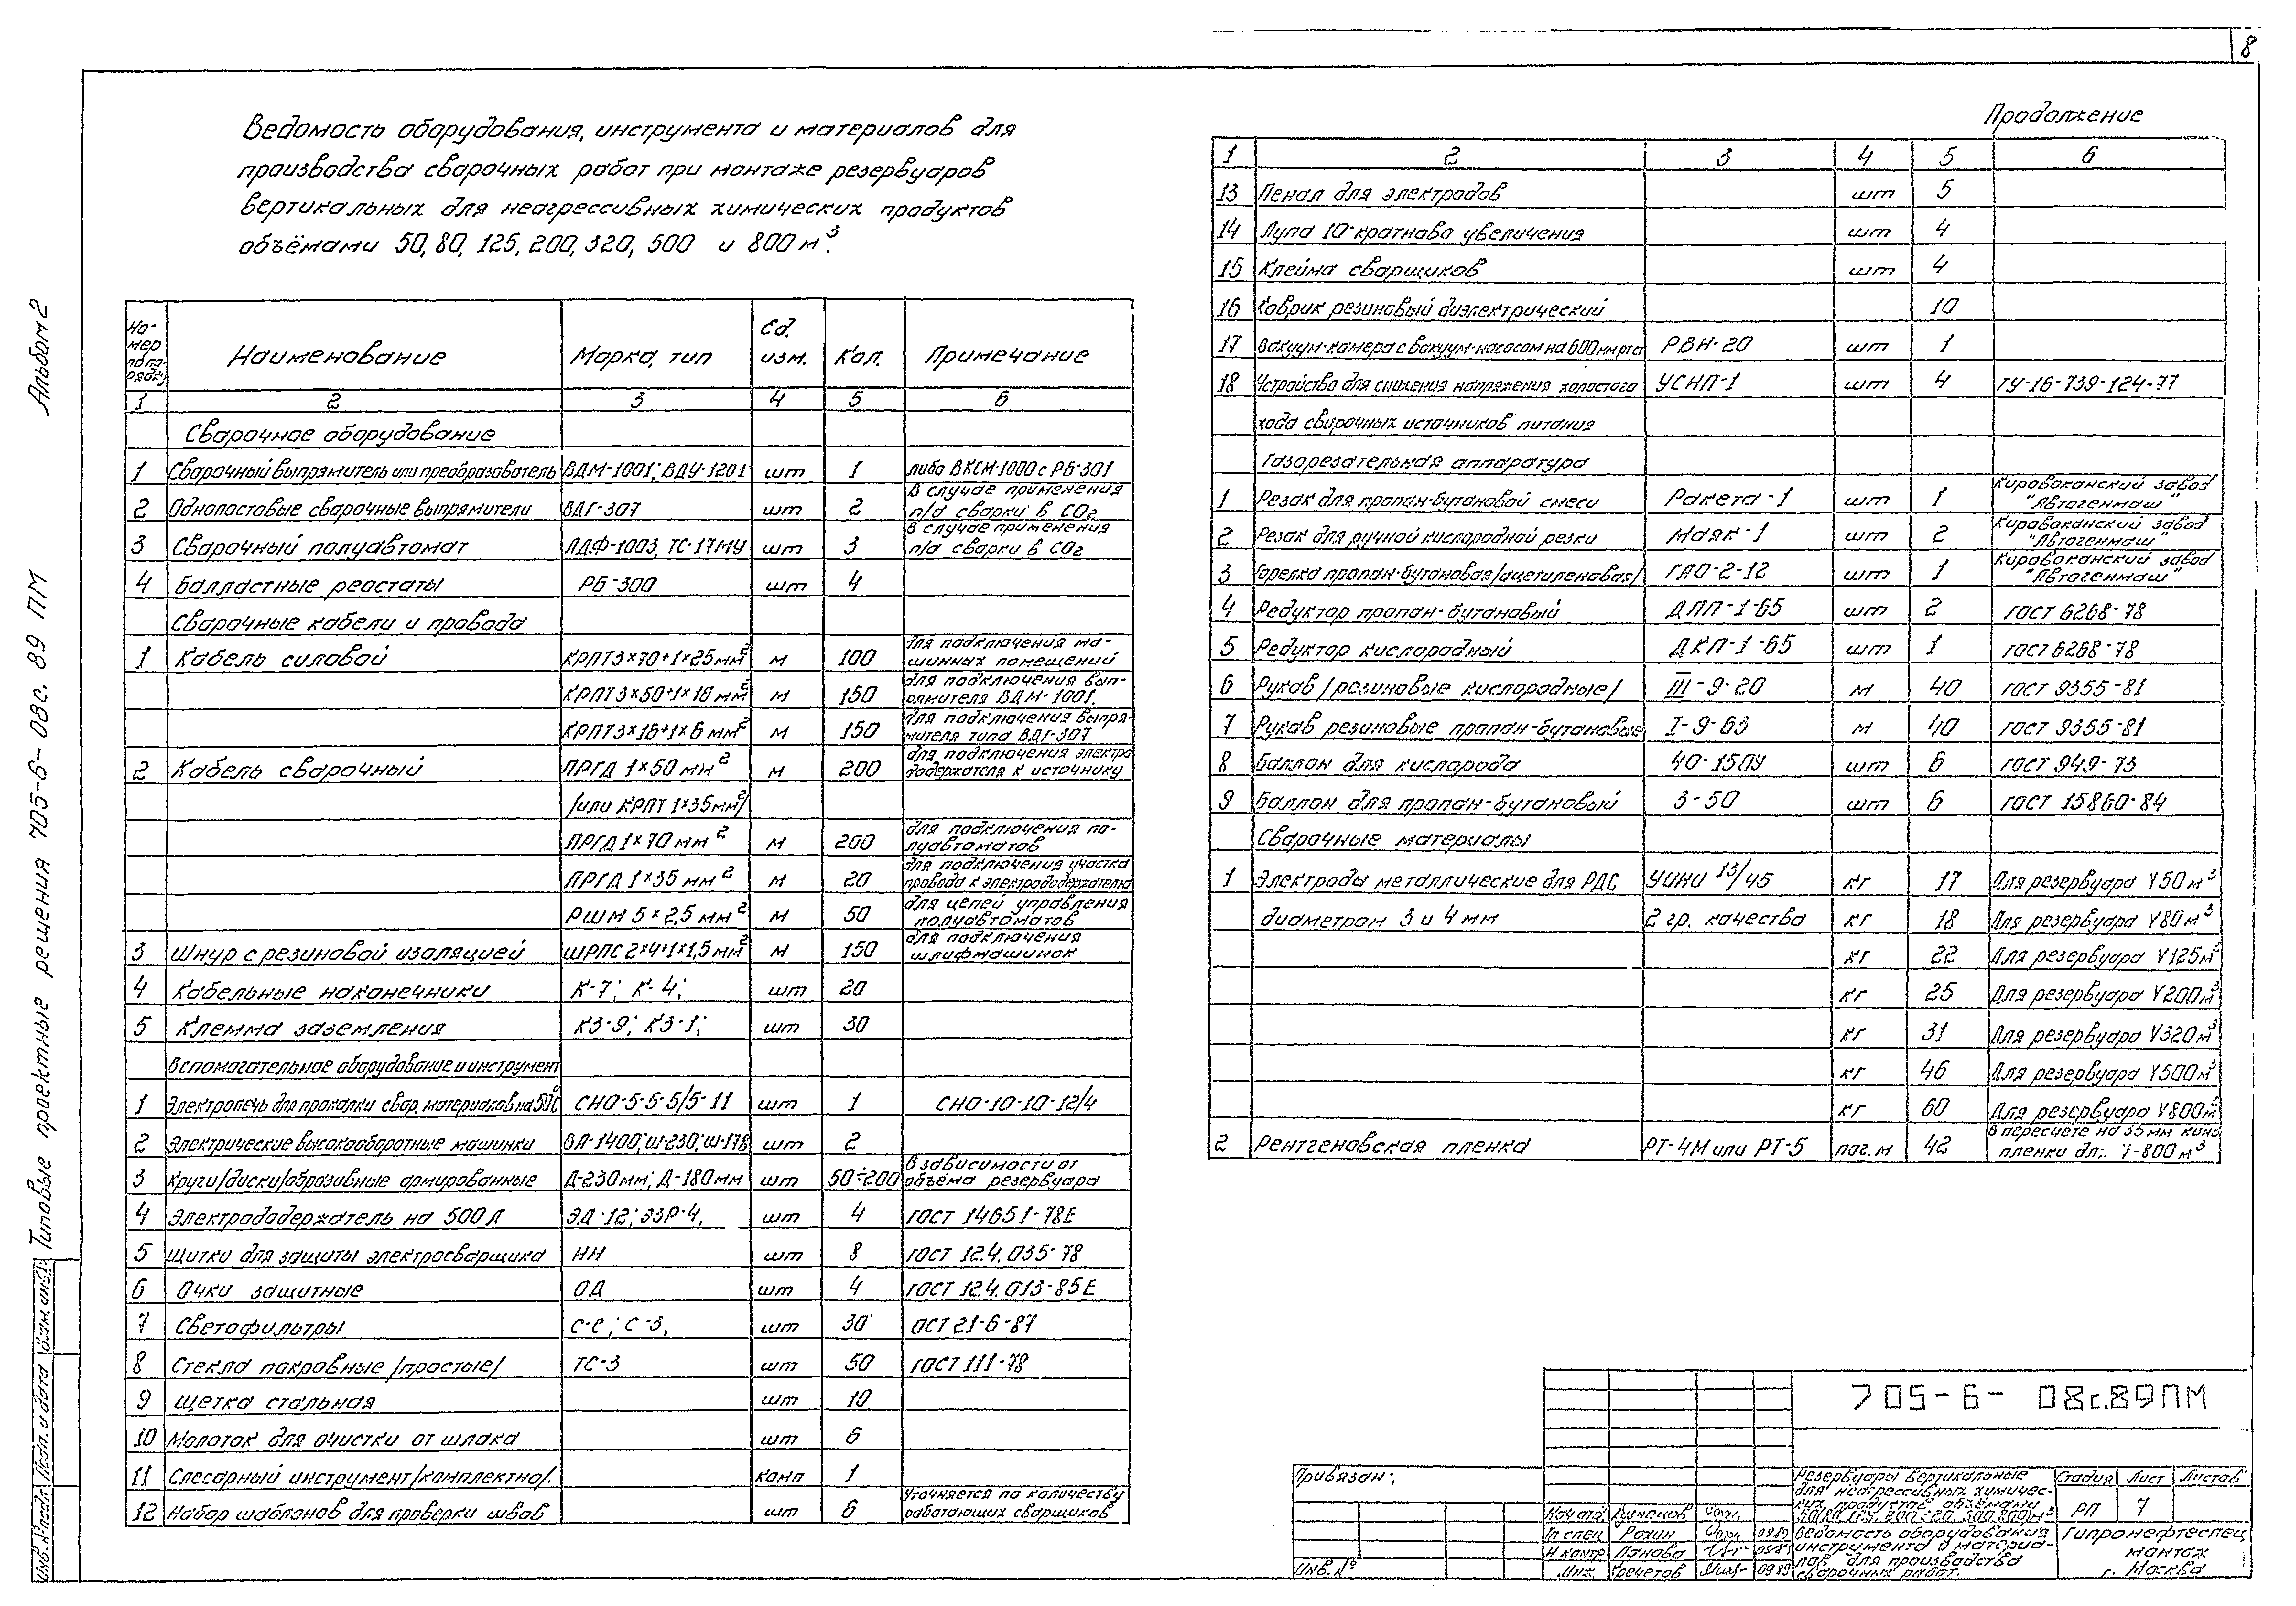 8
Альбом 2
Типовые проектные решения 705-6-08с.89 ПМ
Ведомость оборудования, инструмента и материалов для
производства сварочных работ при монтаже резервуаров
вертикальных для неагрессивных химических продуктов
объёмами 50, 80, 125, 200, 320, 500 и 800 м³.
Но-мер по по-рядку | Наименование | Марка, тип | Ед. изм. | Кол. | Примечание
1 | 2 | 3 | 4 | 5 | 6
Сварочное оборудование
1 | Сварочный выпрямитель или преобразователь | ВДМ-1001; ВДУ-1201 | шт | 1 | либо ВКСМ-1000 с РБ-301
2 | Однопостовые сварочные выпрямители | ВДГ-307 | шт | 2 | В случае применения п/а сварки в СО₂
3 | Сварочный полуавтомат | АДФ-1003, ТС-17МУ | шт | 3 | В случае применения п/а сварки в СО₂
4 | Балластные реостаты | РБ-300 | шт | 4
Сварочные кабели и провода
1 | Кабель силовой | КРПТ 3×70+1×25 мм² | м | 100 | для подключения ма-шинных помещений
КРПТ 3×50+1×16 мм² | м | 150 | для подключения вып-рямителя ВДМ-1001.
КРПТ 3×16+1×6 мм² | м | 150 | для подключения выпря-мителя типа ВДГ-307
2 | Кабель сварочный | ПРГД 1×50 мм² | м | 200 | для подключения электро додержателя к источнику
/или КРПТ 1×35 мм²/
ПРГД 1×70 мм² | м | 200 | для подключения по-луавтоматов
ПРГД 1×35 мм² | м | 20 | для подключения участка провода к электрододержателю
РШМ 5×2,5 мм² | м | 50 | для цепей управления полуавтоматов
3 | Шнур с резиновой изоляцией | ШРПС 2×4+1×1,5 мм² | м | 150 | для подключения шлифмашинок
4 | Кабельные наконечники | К-7; К-4; | шт | 20
5 | Клемма заземления | КЗ-9; КЗ-1; | шт | 30
Вспомогательное оборудование и инструмент
1 | Электропечь для прокалки свар. материалов на 500°С | СНО-5-5-5/5-11 | шт | 1 | СНО-10-10-12/4
2 | Электрические высокооборотные машинки | ВЛ-1400; Ш-230; Ш-178 | шт | 2
3 | Круги/диски/образивные армированные | Д-230мм; Д-180мм | шт | 50÷200 | В зависимости от объёма резервуара
4 | Электрододержатель на 500 А | ЭД-12; ЭЗР-4, | шт | 4 | ГОСТ 14651-78Е
5 | Щитки для защиты электросварщика | НН | шт | 8 | ГОСТ 12.4.035-78
6 | Очки защитные | ОД | шт | 4 | ГОСТ 12.4.013-85Е
7 | Светофильтры | С-е; С-3, | шт | 30 | ОСТ 21-6-87
8 | Стекла покровные /простые/ | ТС-3 | шт | 50 | ГОСТ 111-78
9 | Щетка стальная | шт | 10
10 | Молоток для очистки от шлака | шт | 6
11 | Слесарный инструмент/комплектно/. | комп | 1
12 | Набор шаблонов для проверки швов | шт | 6 | Уточняется по количеству работающих сварщиков
Продолжение
1 | 2 | 3 | 4 | 5 | 6
13 | Пенал для электродов | шт | 5
14 | Лупа 10-кратново увеличения | шт | 4
15 | Клейма сварщиков | шт | 4
16 | Коврик резиновый диэлектрический | 10
17 | Вакуум-камера с вакуум-насосом на 600 мм рт ст | РВН-20 | шт | 1
18 | Устройство для снижения напряжения холостого | УСНП-1 | шт | 4 | ТУ-16-739-124-77
хода сварочных источников питания
Газорезательная аппаратура
1 | Резак для пропан-бутановой смеси | Ракета-1 | шт | 1 | Кироваканский завод "Автогенмаш"
2 | Резак для ручной кислородной резки | Маяк-1 | шт | 2 | Кироваканский завод "Автогенмаш"
3 | Горелка пропан-бутановая/ацетиленовая/ | ГАО-2-12 | шт | 1 | Кироваканский завод "Автогенмаш"
4 | Редуктор пропан-бутановый | ДПП-1-65 | шт | 2 | ГОСТ 6268-78
5 | Редуктор кислородный | ДКП-1-65 | шт | 1 | ГОСТ 6268-78
6 | Рукав /резиновые кислородные/ | III-9-20 | м | 40 | ГОСТ 9355-81
7 | Рукав резиновые пропан-бутановые | I-9-63 | м | 40 | ГОСТ 9355-81
8 | Баллон для кислорода | 40-150У | шт | 6 | ГОСТ 949-73
9 | Баллон для пропан-бутановый | 3-50 | шт | 6 | ГОСТ 15860-84
Сварочные материалы
1 | Электроды металлические для РДС | УОНИ 13/45 | кг | 17 | Для резервуара V50м³
диаметром 3 и 4 мм | 2 гр. качества | кг | 18 | Для резервуара V80м³
кг | 22 | Для резервуара V125м³
кг | 25 | Для резервуара V200м³
кг | 31 | Для резервуара V320м³
кг | 46 | Для резервуара V500м³
кг | 60 | Для резервуара V800м³
2 | Рентгеновская пленка | РТ-4М или РТ-5 | пог. м | 42 | В пересчете на 35 мм кино пленки для V-800м³
705-6- 08с.89ПМ
Привязан:
Инв. №
Нач отд. Кузнецов
Гл спец Рохин 09.89
Н контр Панова
Инж. Кочетов 09 89
Резервуары вертикальные
для неагрессивных химичес-
ких продуктов объёмами
50, 80, 125, 200, 320, 500, 800 м³
Ведомость оборудования
инструмента и материа-
лов для производства
сварочных работ.
Стадия | Лист | Листов
РП | 7
Гипронефтеспец
монтаж
г. Москва
Взам. инв. №
Подп. и дата
Инв. № подл.